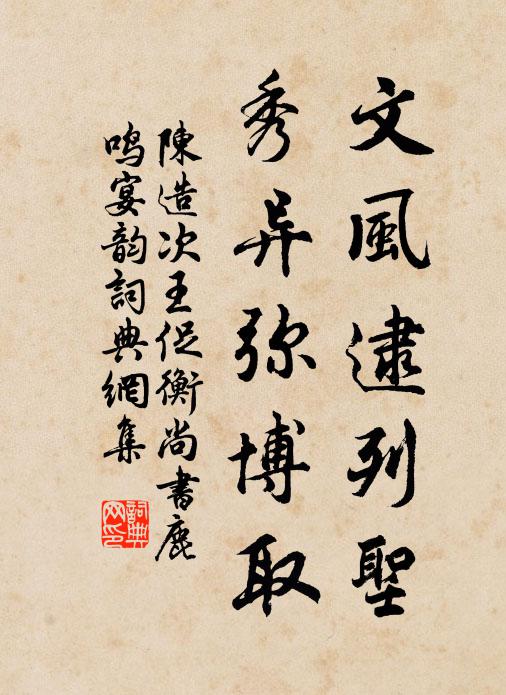 文風逮列聖
秀异弥博取
陳造次王促衡尚書鹿
鳴宴韵詞典網集
詞典网印